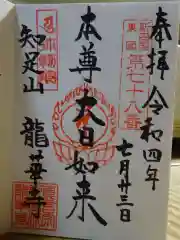 奉拝 令和四年
七月廿三日
新四国
東国
第七十八番
本尊大日如来
知足山
龍華寺